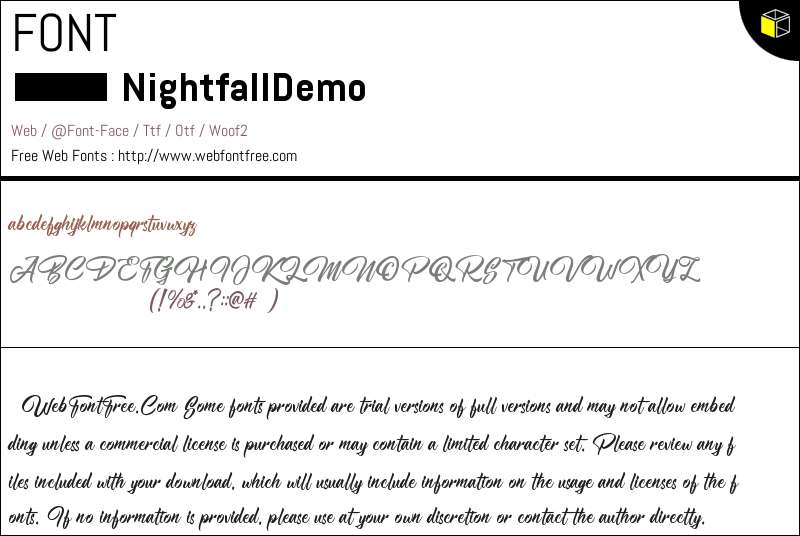 FONT
NightfallDemo
Web / @Font-Face / Ttf / Otf / Woof2
Free Web Fonts : http://www.webfontfree.com
abcdefghijklmnopqrstuvwxyz
ABCDEFGHIJKLMNOPQRSTUVWXYZ
(!%&*..?::@# )
WebFontFree.Com Some fonts provided are trial versions of full versions and may not allow embed
ding unless a commercial license is purchased or may contain a limited character set. Please review any f
iles included with your download, which will usually include information on the usage and licenses of the f
onts. If no information is provided, please use at your own discretion or contact the author directly.